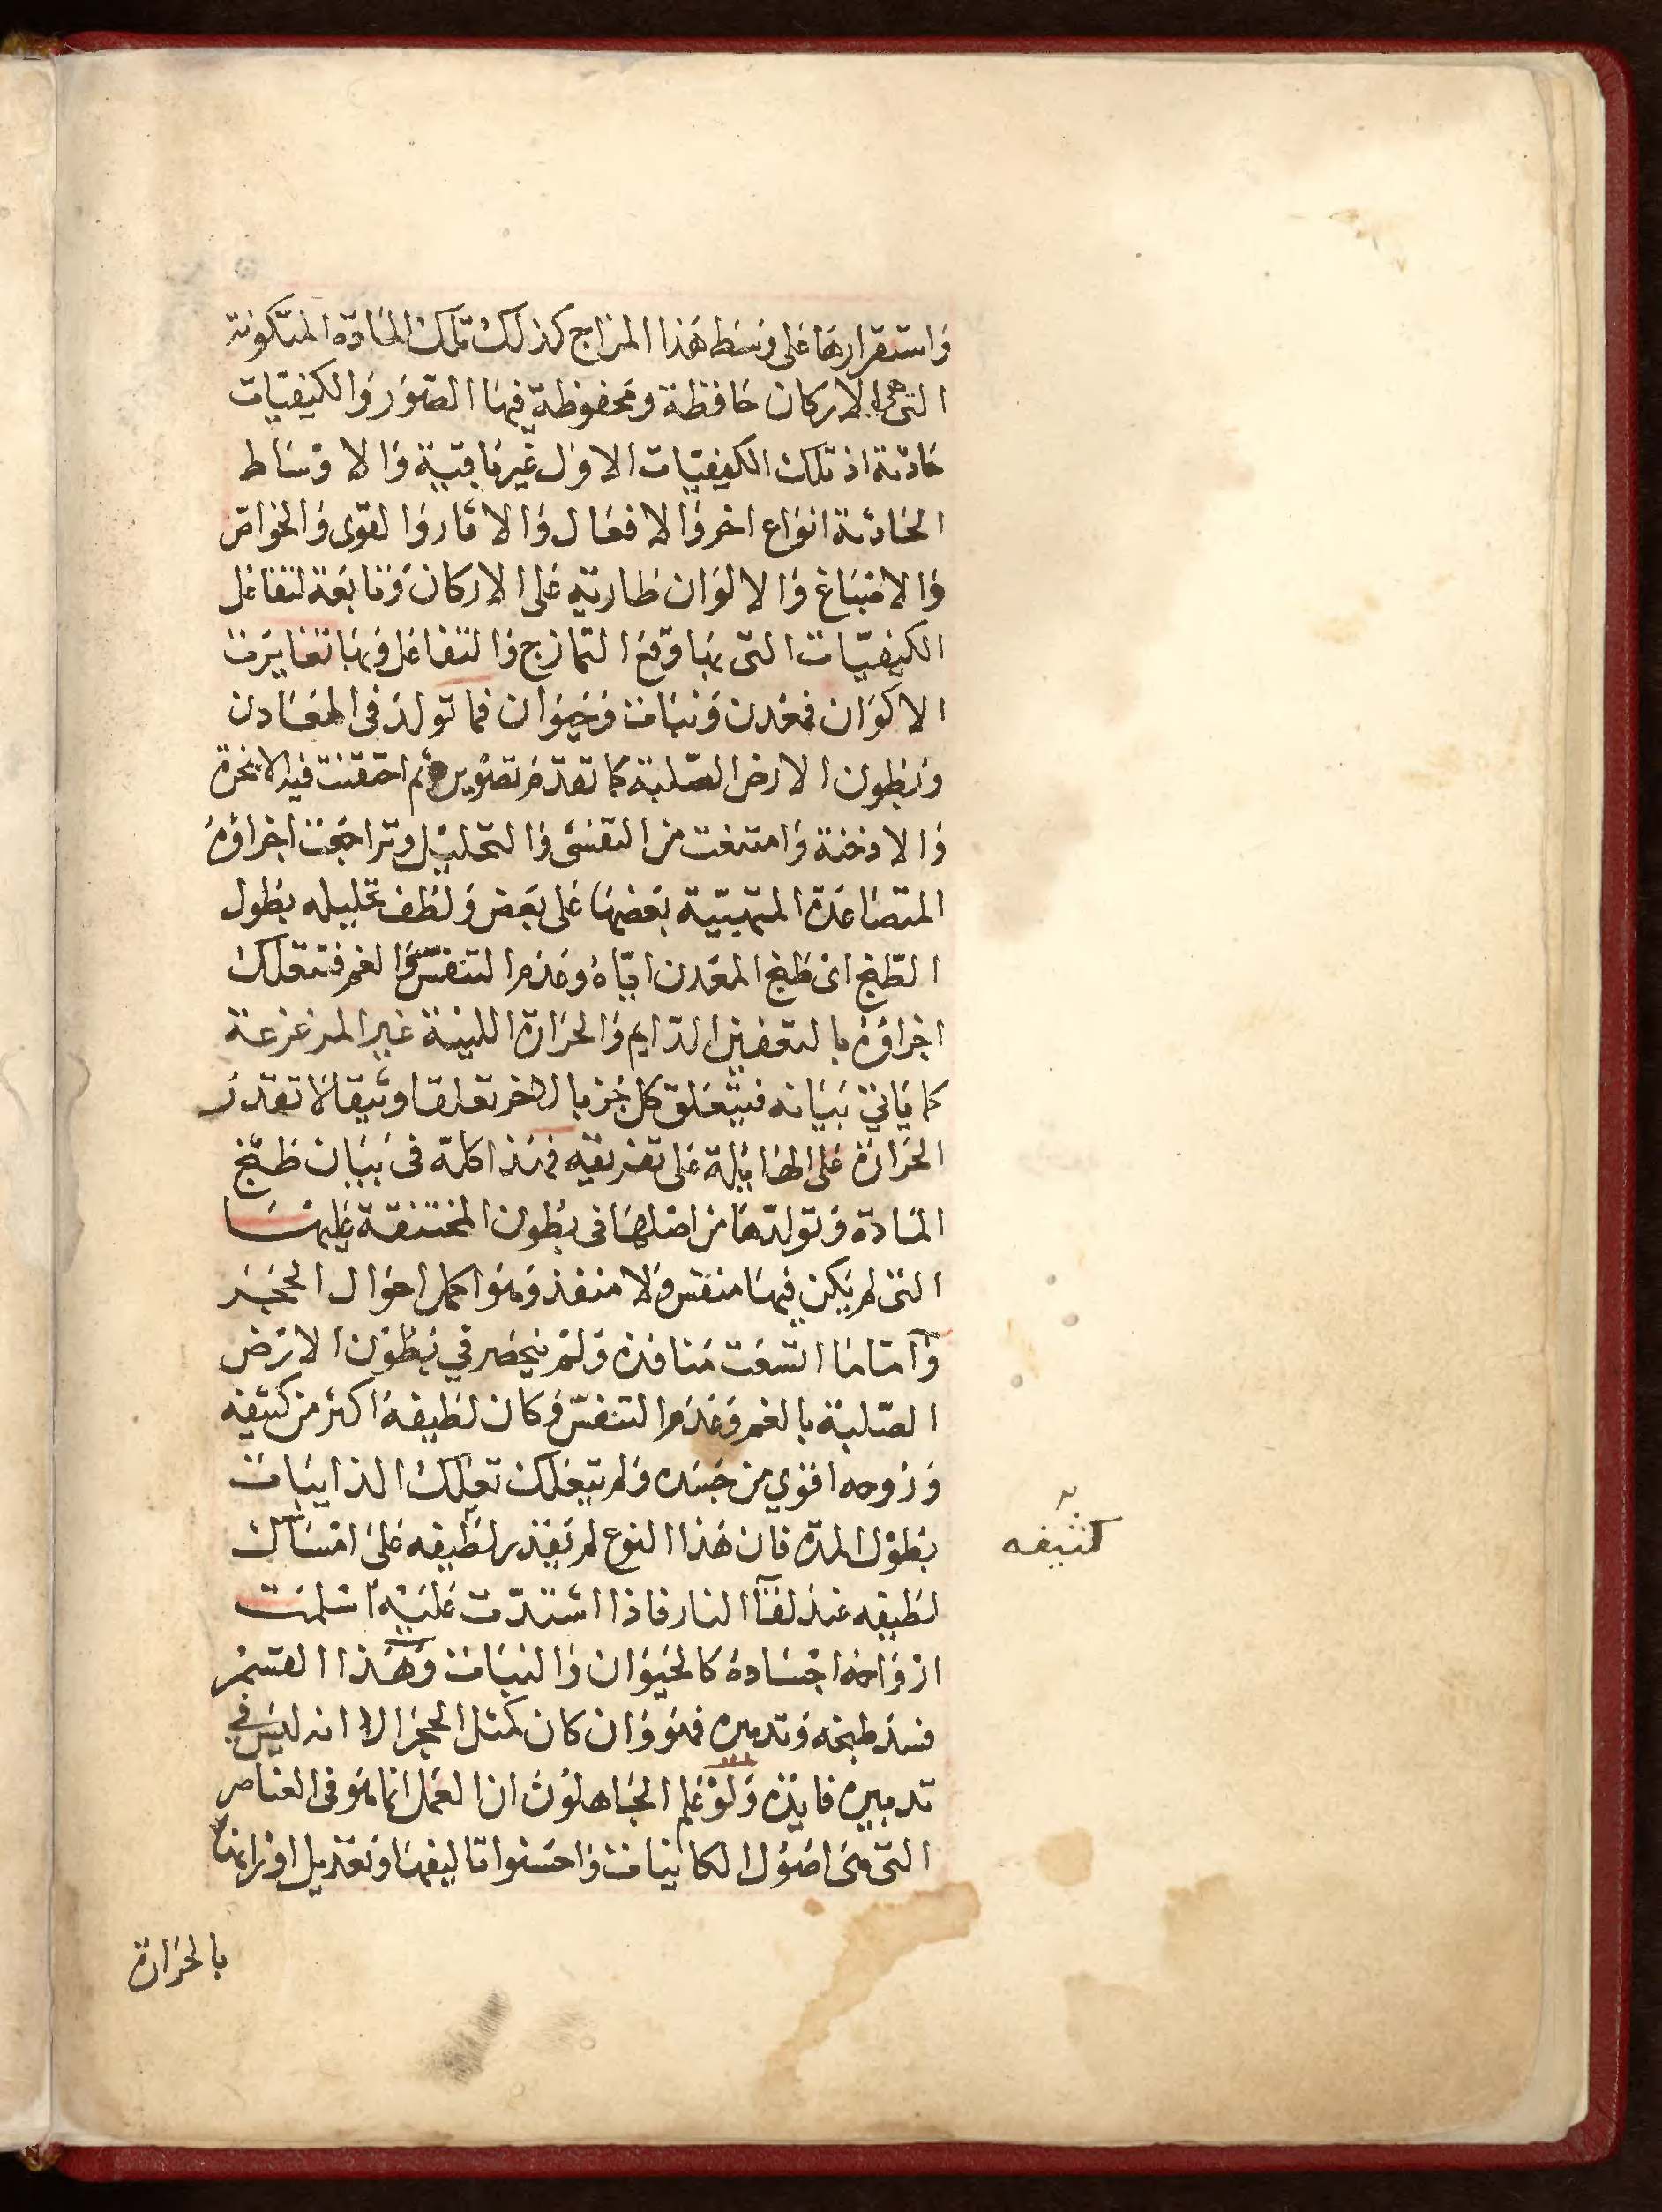 واستقرارها على وسط هذا المزاج كذلك تلك المادة المتكونة
التى هى الاركان حافظة ومحفوظة فيها الصور والكيفيات
حادثة اذ تلك الكيفيات الاول غير باقية والاوساط
الحادثة انواع اخر والافعال والاثار والقوى والخواص
والاصباغ والالوان طارية على الاركان وتابعة لتفاعل
الكيفيات التى بها وقع التمازج والتفاعل وبها تغايرت
الاكوان فمعدن ونبات وحيوان فما تولد فى المعادن
وبطون الارض الصلبة كما تقدم تصويره ثم احتقنت فيه الابخرة
والادخنة وامتنعت من التفشى والتحليل وتراجعت اجزاؤه
المتصاعدة المتهبية بعضها على بعض ولطف تحليله بطول
الطبخ اى طبخ المعدن اياه وعدم التنفس والغم فتتعلك
اجزاؤه بالتعفين الدايم والحرارة اللينة غير المزعزعة
كما ياتى بيانه فيتعلق كل جز بالاخر تعلقا وثيقا لا تقدر
الحرارة على الهايلة على تفريقه فهذا كله فى بيان طبخ
المادة وتولدها من اصلها فى بطون المختنقة عليها
التى لم يكن فيها منفس ولا منفذ وهو اكمل احوال الحجر
واما ما اتسعت منافذه ولم ينحصر في بطون الارض
الصلبة بالغم وعدم التنفس وكان لطيفه اكثر من كثيفه
وروحه اقوي من جسده ولم يتعلك تعلك الذايبات
بطول المدة فان هذا النوع لم يقدر لطيفه على امساك
كثيفه
لطيفه عند لقآ النار فاذا اشتدت عليه اسلمت
ارواحه اجساده كالحيوان والنبات وهذا القسم
فسد طبخه وتدبيره فهو وان كان كمثل الحجر الا انه ليس في
تدبيره فايدة ولو علم الجاهلون ان العمل انما هو فى العناصر
التى هى اصول الكاينات واحسنوا تاليفها وتعديل اوزانها
بالحرارة